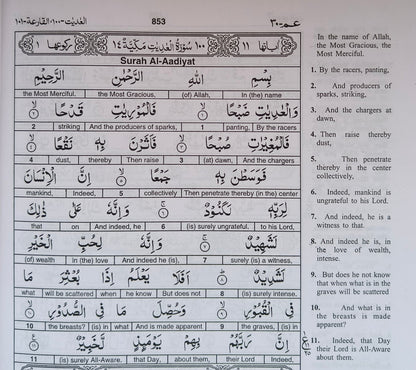 العٰديٰت-١٠٠، القارعة-١٠١ 853 عـم-٣٠
اٰياتها ١١ ١٠٠ سُوْرَةُ الْعٰدِيٰتِ مَكِّيَّةٌ ١٤ ركوعها ١
Surah Al-Aadiyat
بِسْمِ اللّٰهِ الرَّحْمٰنِ الرَّحِيْمِ
the Most Merciful. the Most Gracious, (of) Allah, In (the) name
وَالْعٰدِيٰتِ ضَبْحًا ١ فَالْمُوْرِيٰتِ قَدْحًا ٢
2 striking And the producers of sparks, 1 panting, By the racers
فَالْمُغِيْرٰتِ صُبْحًا ٣ فَاَثَرْنَ بِهٖ نَقْعًا ٤
4 dust, thereby Then raise 3 (at) dawn, And the chargers
فَوَسَطْنَ بِهٖ جَمْعًا ٥ اِنَّ الْاِنْسَانَ
mankind, Indeed, 5 collectively, Then penetrate thereby (in the) center
لِرَبِّهٖ لَكَنُوْدٌ ٦ وَاِنَّهٗ عَلٰى ذٰلِكَ
that on And indeed, he 6 (is) surely ungrateful. to his Lord,
لَشَهِيْدٌ ٧ وَاِنَّهٗ لِحُبِّ الْخَيْرِ
(of) wealth (in the) love And indeed he, 7 surely (is) a witness,
لَشَدِيْدٌ ٨ اَفَلَا يَعْلَمُ اِذَا بُعْثِرَ مَا
what will be scattered when he know But does not 8 (is) surely intense.
فِى الْقُبُوْرِ ٩ وَحُصِّلَ مَا فِى الصُّدُوْرِ ١٠
10 the breasts? (is) in what And is made apparent 9 the graves, (is) in
اِنَّ رَبَّهُمْ بِهِمْ يَوْمَئِذٍ لَّخَبِيْرٌ ١١
11 (is) surely All-Aware. that Day, about them, their Lord Indeed,
In the name of Allah,
the Most Gracious, the
Most Merciful.
1. By the racers, panting,
2. And producers of
sparks, striking,
3. And the chargers at
dawn,
4. Then raise thereby
dust,
5. Then penetrate
thereby in the center
collectively,
6. Indeed, mankind is
ungrateful to his Lord.
7. And indeed, he is a
witness to that.
8. And indeed he is, in
the love of wealth,
intense.
9. But does he not know
that when what is in the
graves will be scattered
10. And what is in
the breasts is made
apparent?
11. Indeed, that Day
their Lord is All-Aware
about them.